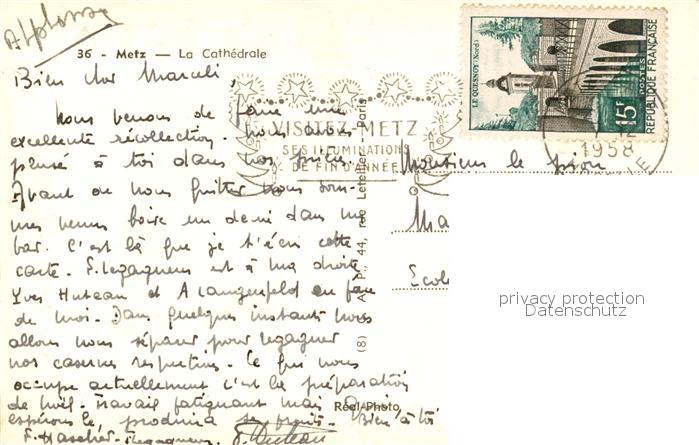 Alphonse
36 - Metz — La Cathédrale
Bien cher Marcel,
Nous venons de faire une
excellente récollection. Nous avons
pensé à toi dans nos prières.
Avant de nous quitter nous som-
mes venus boire un demi dans un
bar. C'est là que je t'écris cette
carte. F. Legagneux est à ma droite
Yves Huteau et A Langenfeld en face
de moi. Dans quelques instants nous
allons nous séparer pour regagner
nos casernes respectives. Ce qui nous
occupe actuellement c'est la préparation
de Noël. Travail fatiguant mais qui
espérons le, produira ses fruits. Bien à toi
F. Legagneux Y. Huteau
VISITEZ METZ
SES ILLUMINATIONS
DE FIN D'ANNÉE
(8) A. P., 44, rue Letellier, Paris
Réel-Photo
LE QUESNOY (Nord)
15F
POSTES
REPUBLIQUE FRANÇAISE
1958
Monsieur le
Ma
Ecole
privacy protection
Datenschutz